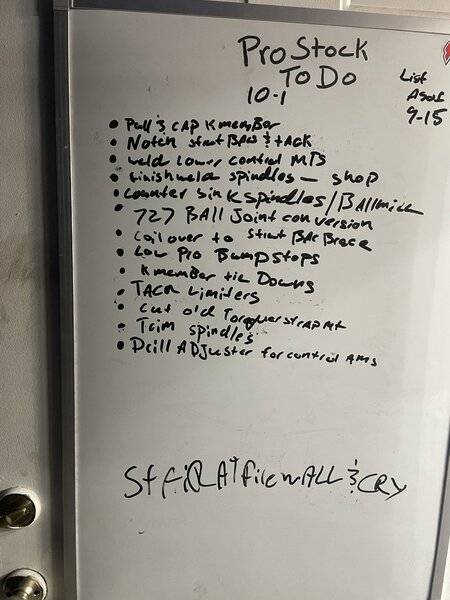 Pro Stock
To Do
10-1
List
As of
9-15
• Pull & cap Kmember
• Notch strut BArs & tAck
• weld Lower control MTS
• finish weld spindles – shop
• counter sink spindles / BAllmill
• 727 BAll Joint conversion
• coilover to strut BAr Brace
• Low Pro Bumpstops
• Kmember tie Downs
• TACK Limiters
• Cut old Torquerstrap mt
• Trim spindles
• Drill ADJuster for control Arms
At firewALL & CRY